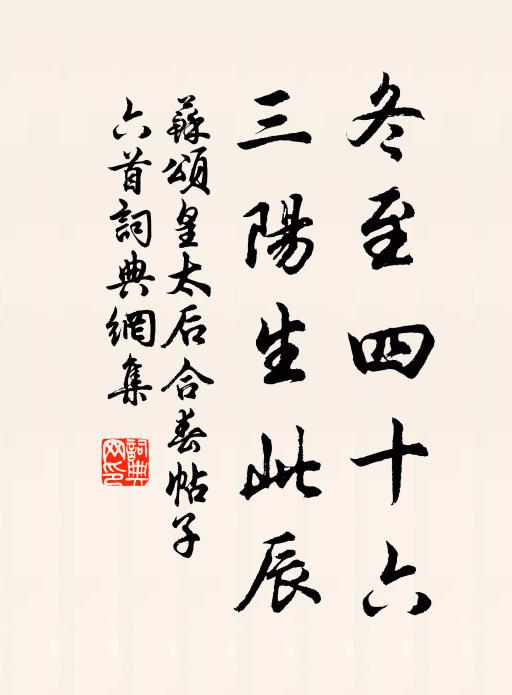 冬至四十六
三陽生此辰
蘇頌皇太后合春帖子
六首詞典網集
詞典
网印